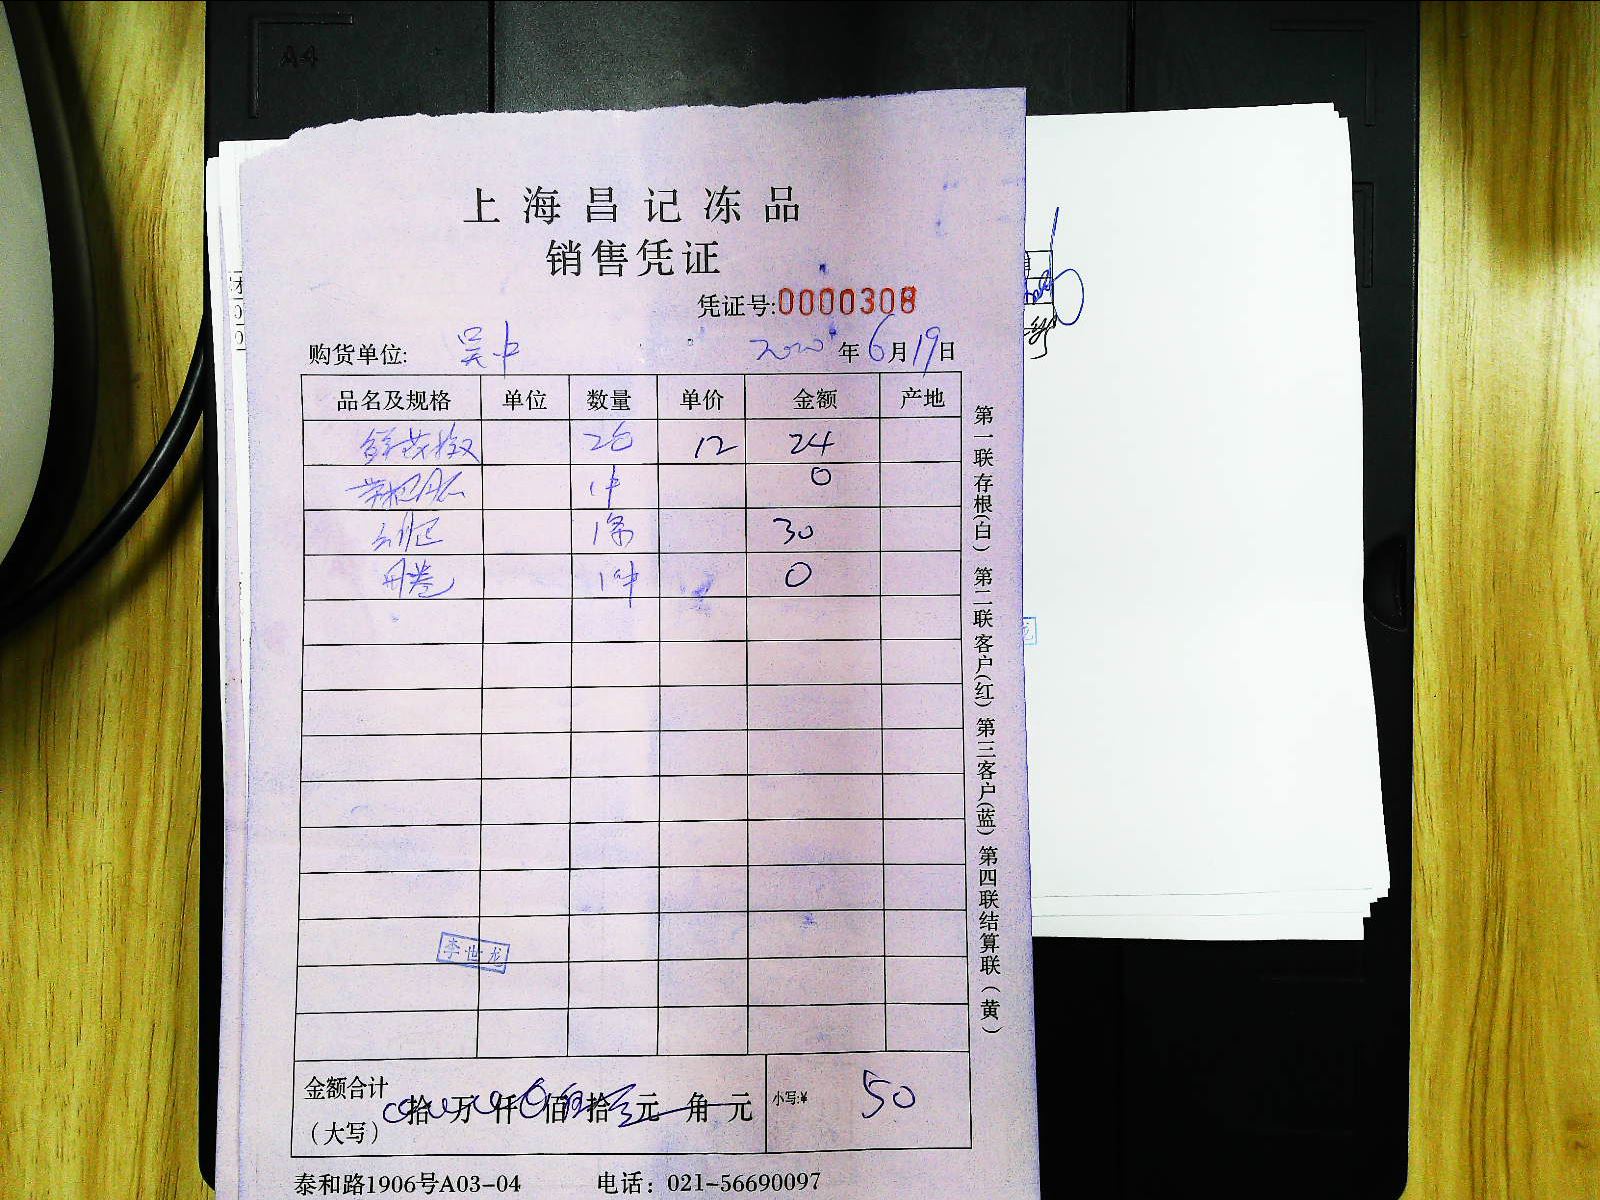 A4
上海昌记冻品
销售凭证
凭证号:0000308
购货单位: 吴中 2020年6月19日
品名及规格 单位 数量 单价 金额 产地
2包 12 24
1件 0
1条 30
1件 0
李世龙
金额合计 拾 万 仟 佰 拾 元 角 元 小写:¥ 50
(大写)
泰和路1906号A03-04 电话: 021-56690097
第一联存根(白) 第二联客户(红) 第三客户(蓝) 第四联结算联(黄)